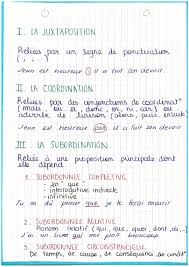 I. LA JUXTAPOSITION
Reliées par un signe de ponctuation
( , ; . )
Jean est heureux il a fait son devoir
II. LA COORDINATION
Reliées par des conjonctions de coordinat°
(mais, ou, et, donc, or, ni, car) ou
adverbe de liaison (alors, puis, ensuite)
Jean est heureux car il a fait son devoir
III. LA SUBORDINATION
Reliée à une proposition principale dont elle dépend
1. SUBORDONNEE COMPLETIVE
- en "que"
- interrogative indirecte
- infinitive
J'ai su du penser que je te ferai mourir
2. SUBORDONNEE RELATIVE
Pronom relatif (qui, que, quoi, dont, où, ...)
J'ai un livre qui me plait beaucoup
3. SUBORDONNEE CIRCONSTANCIELLE
De temps, de cause, de conséquence, de condit°